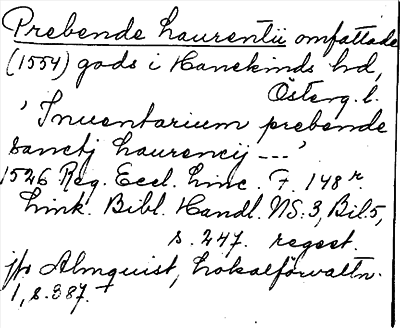 Prebende Laurentii omfattade
(1554) gods i Hanekinds hd,
Österg. l.
'Inventarium prebende
sanctj Laurencij ---'
1526 Reg. Eccl. Linc. F. 148 r.
Link. Bibl. Handl. NS. 3, Bil. 5,
s. 247. regest.
jfr Almquist, Lokalförvaltn.
1, s. 387.